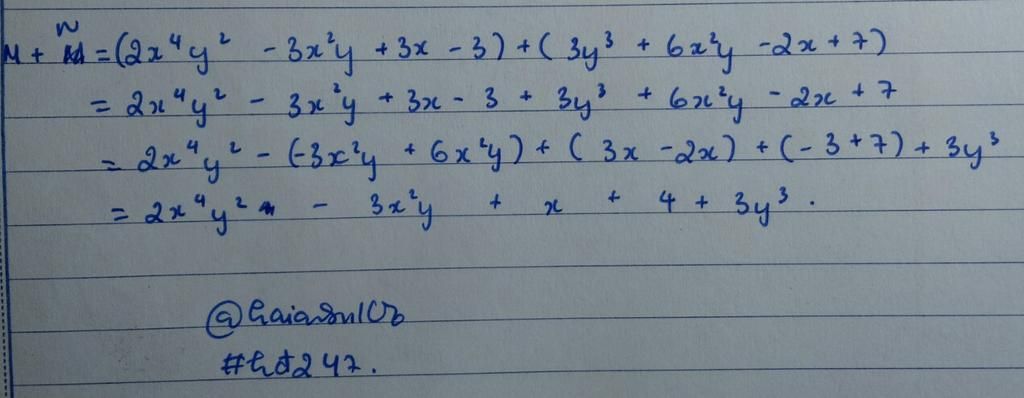 M + N = (2x⁴y² - 3x²y + 3x - 3) + ( 3y³ + 6x²y - 2x + 7)
= 2x⁴y² - 3x²y + 3x - 3 + 3y³ + 6x²y - 2x + 7
= 2x⁴y² - (-3x²y + 6x²y) + ( 3x - 2x) + (- 3 + 7) + 3y³
= 2x⁴y² - 3x²y + x + 4 + 3y³ .